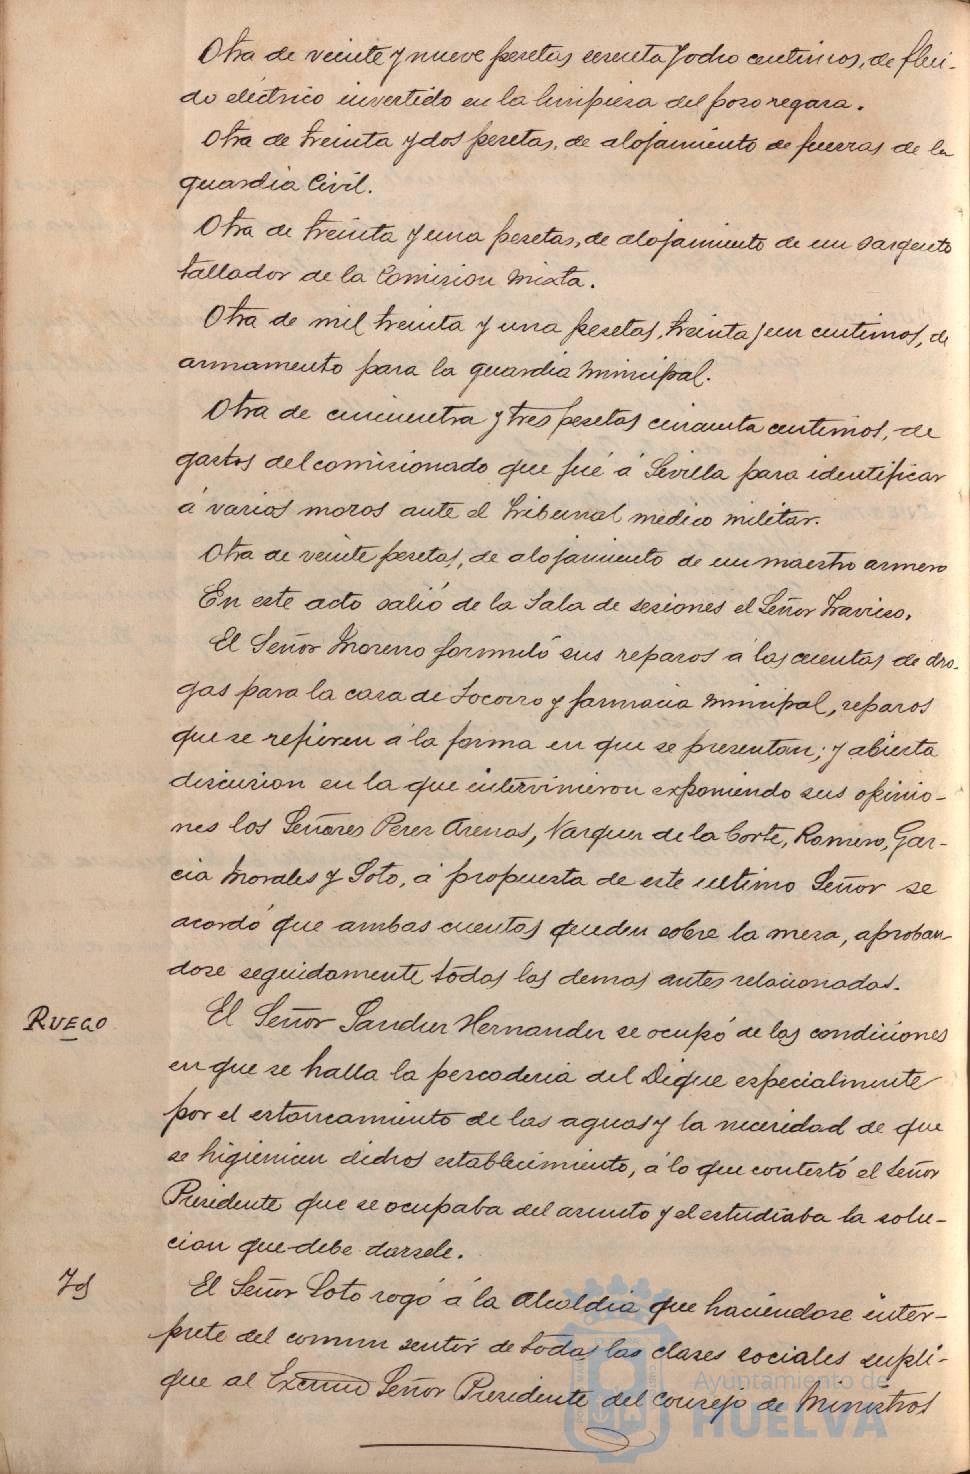 Otra de veinte y nueve pesetas sesenta y ocho centimos, de flui-
do eléctrico invertido en la limpieza del pozo negara.
Otra de treinta y dos pesetas, de alojamiento de fuerzas de la
guardia Civil.
Otra de treinta y una pesetas, de alojamiento de un sargento
tallador de la Comision Mixta.
Otra de mil treinta y una pesetas, treinta y un centimos, de
armamento para la guardia Municipal.
Otra de cincuenta y tres pesetas cincuenta centimos, de
gastos del comisionado que fué á Sevilla para identificar
á varios mozos ante el Tribunal medico militar.
Otra de veinte pesetas, de alojamiento de un maestro armero
En este acto salió de la Sala de sesiones el Señor Travieso.
El Señor Moreno formuló sus reparos á las cuentas de dro-
gas para la casa de Socorro y farmacia Municipal, reparos
que se refieren á la forma en que se presentan; y abierta
discusion en la que intervinieron exponiendo sus opinio-
nes los Señores Perez Arenas, Vazquez de la Corte, Romero, Gar-
cia Morales y Soto, á propuesta de este ultimo Señor se
acordó que ambas cuentas queden sobre la mesa, aproban-
dose seguidamente todas las demas antes relacionadas.
RUEGO
El Señor Sanchez Hernandez se ocupó de las condiciones
en que se halla la pescaderia del Dique especialmente
por el estancamiento de las aguas y la necesidad de que
se higienicen dichos establecimiento, á lo que contestó el Señor
Presidente que se ocupaba del asunto y el estudiaba la solu-
cion que debe darsele.
Id
El Señor Soto rogó á la Alcaldia que haciendose inter-
prete del comun sentir de todas las clases sociales supli-
que al Excmo Señor Presidente del Consejo de Ministros
Ayuntamiento de
HUELVA